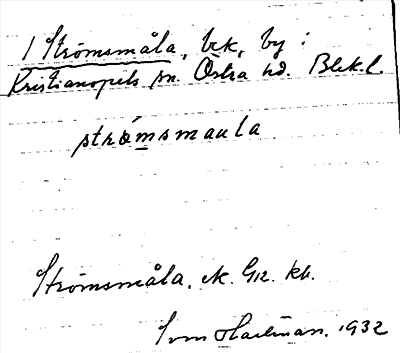 1 Strömsmåla, bek, by i
Kristianopels sn. Östra hd. Blek. l.
strömsmaula
Strömsmåla, ek. G12. kb.
Sven Hartman. 1932